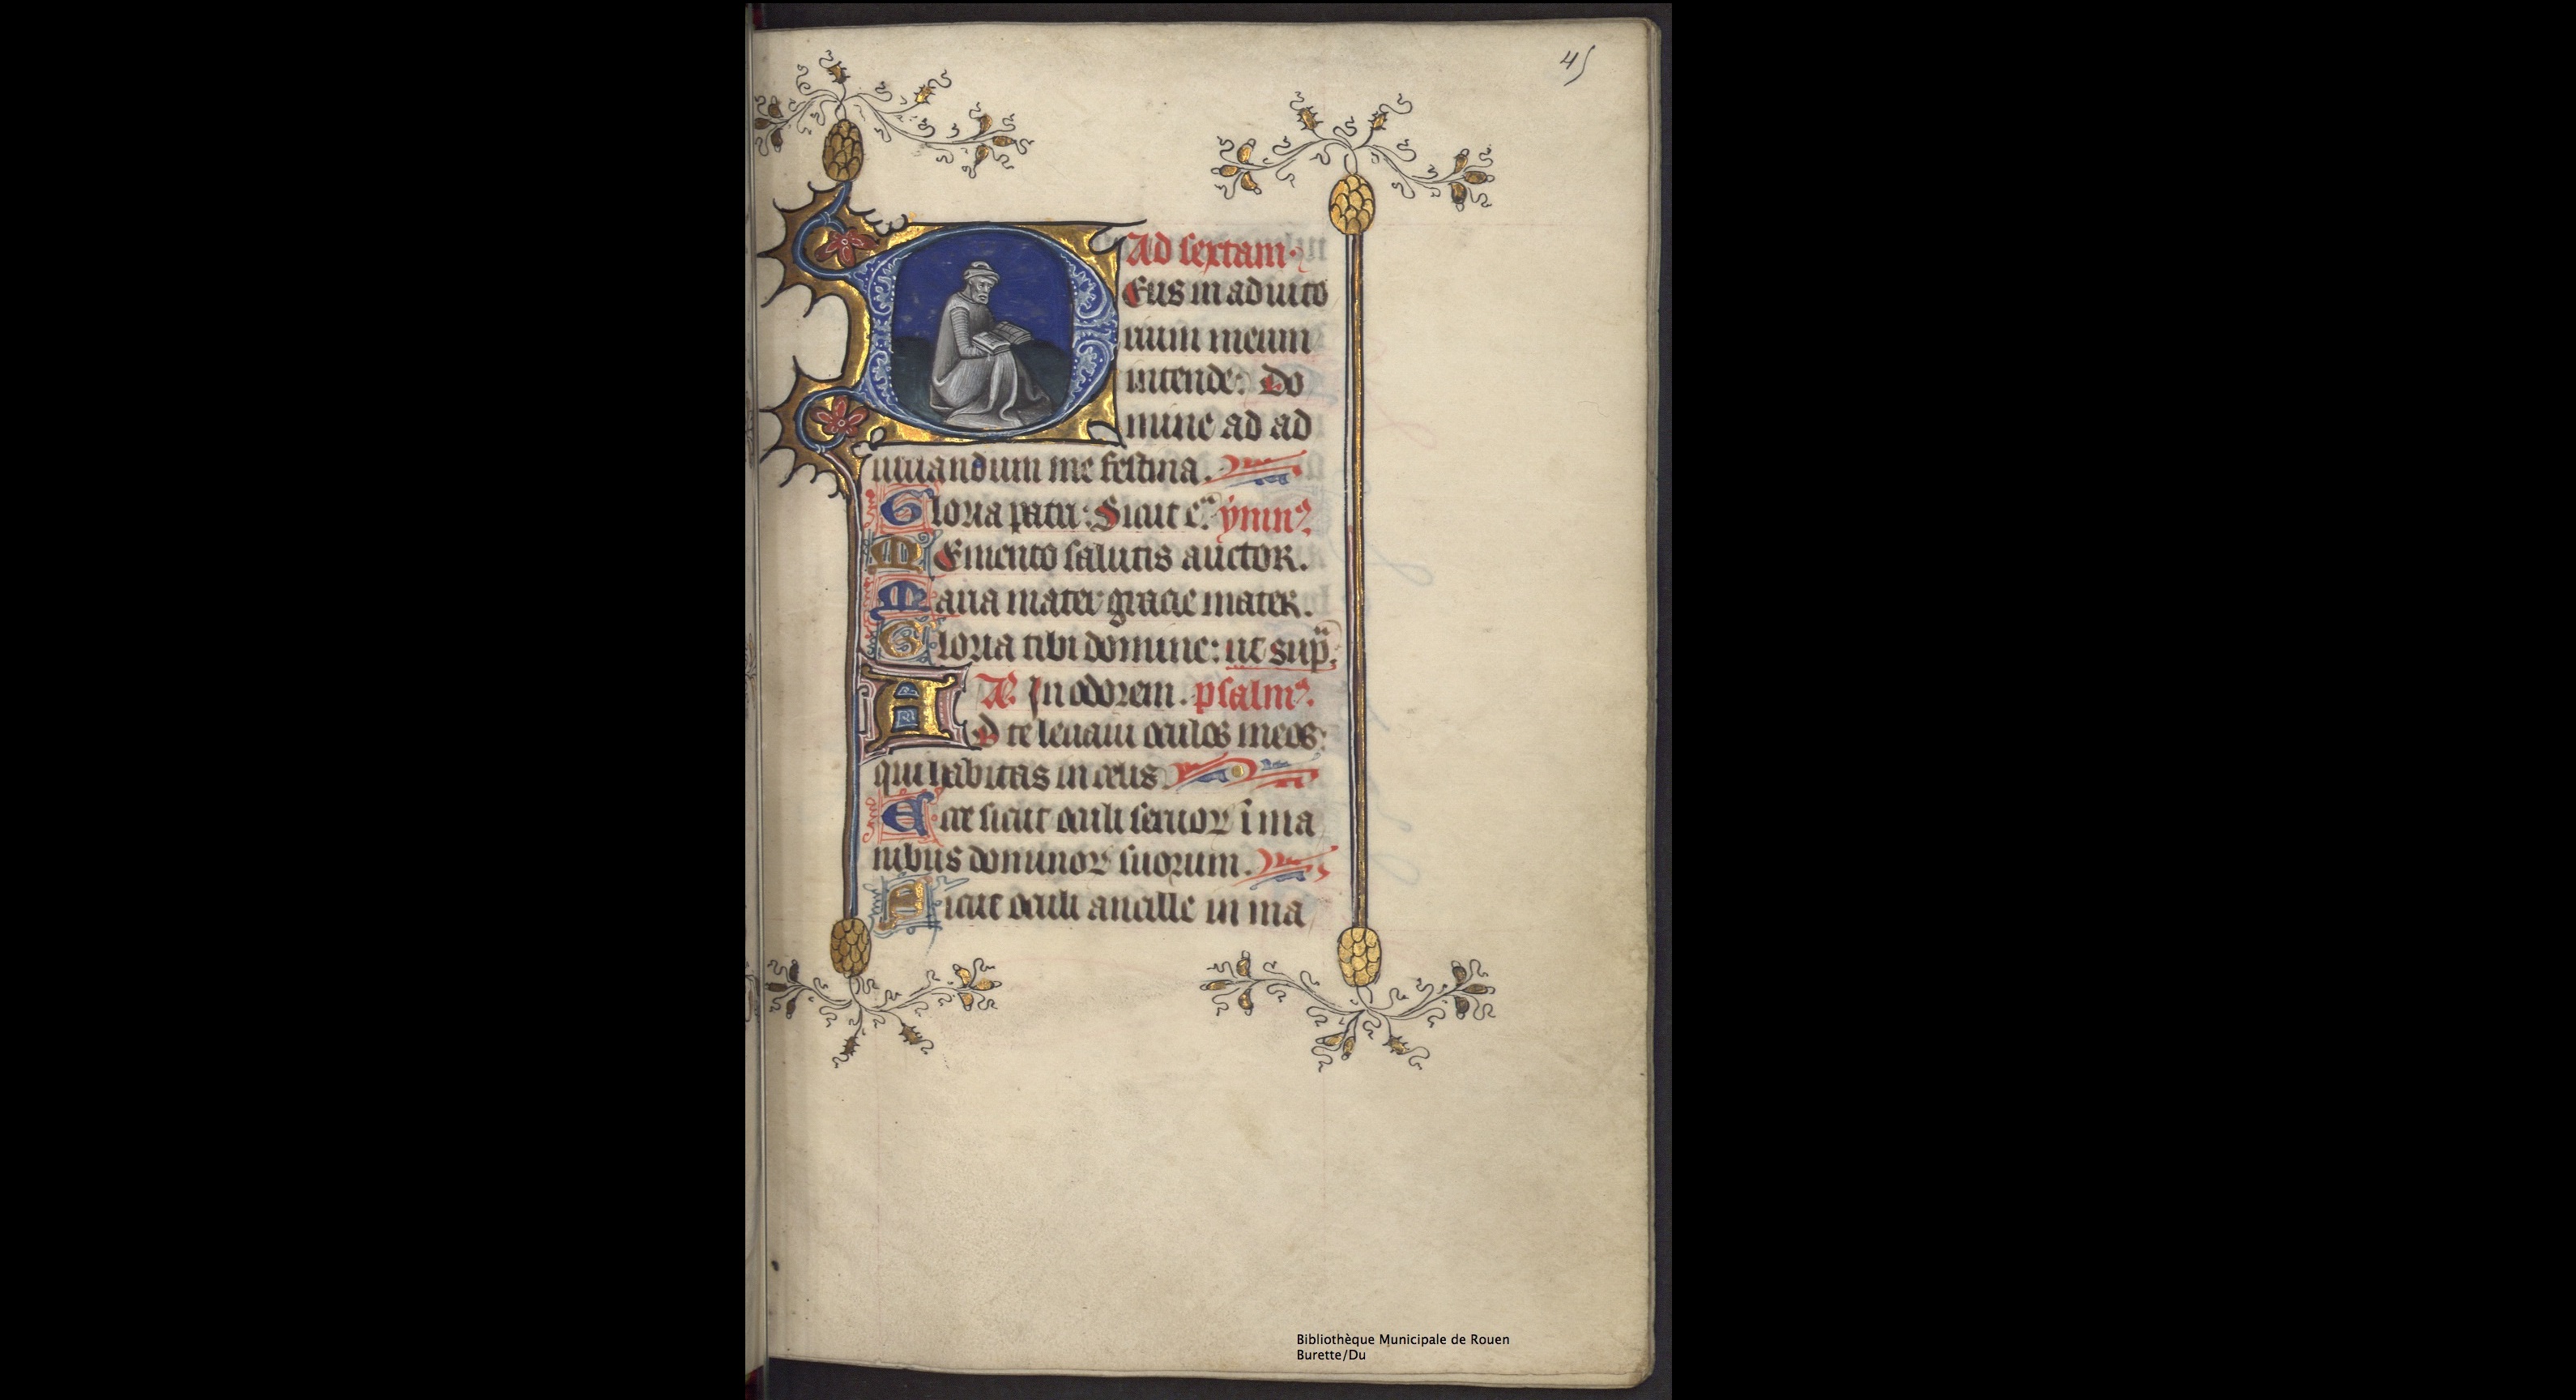 45
Ad sextam.
Eus in adiuto
rium meum
intende: Do
mine ad ad
iuuandum me festina.
Gloria patri: Sicut e^a. ymnꝰ.
MEmento salutis auctor.
Maria mater gracie mater.
Gloria tibi domine: ut sup^a.
An. In odorem. psalmꝰ.
AD te leuaui oculos meos:
qui habitas in celis.
Ecce sicut oculi seruoꝝ ī ma
nibus dominoꝝ suorum.
Sicut oculi ancille in ma
Bibliothèque Municipale de Rouen
Burette/Du